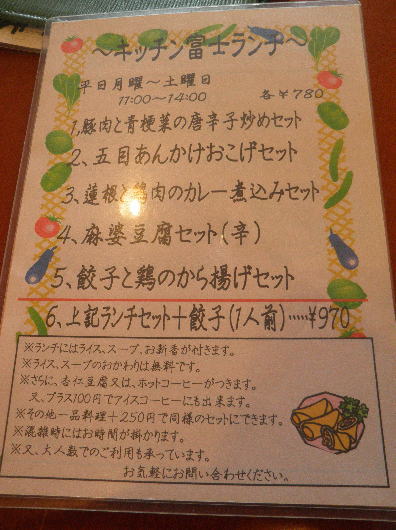 ～キッチン富士ランチ～
平日月曜～土曜日
11:00～14:00 各￥780
1,豚肉と青梗菜の唐辛子炒めセット
2、五目あんかけおこげセット
3、蓮根と鶏肉のカレー煮込みセット
4、麻婆豆腐セット(辛)
5、餃子と鶏のから揚げセット
6、上記ランチセット＋餃子(1人前)‥‥‥￥970
※ランチにはライス、スープ、お新香が付きます。
※ライス、スープのおかわりは無料です。
※さらに、杏仁豆腐又は、ホットコーヒーがつきます。
又、プラス100円でアイスコーヒーにも出来ます。
※その他一品料理＋250円で同様のセットにできます。
※混雑時にはお時間が掛かります。
※又、大人数でのご利用も承っています。
お気軽にお問い合わせください。